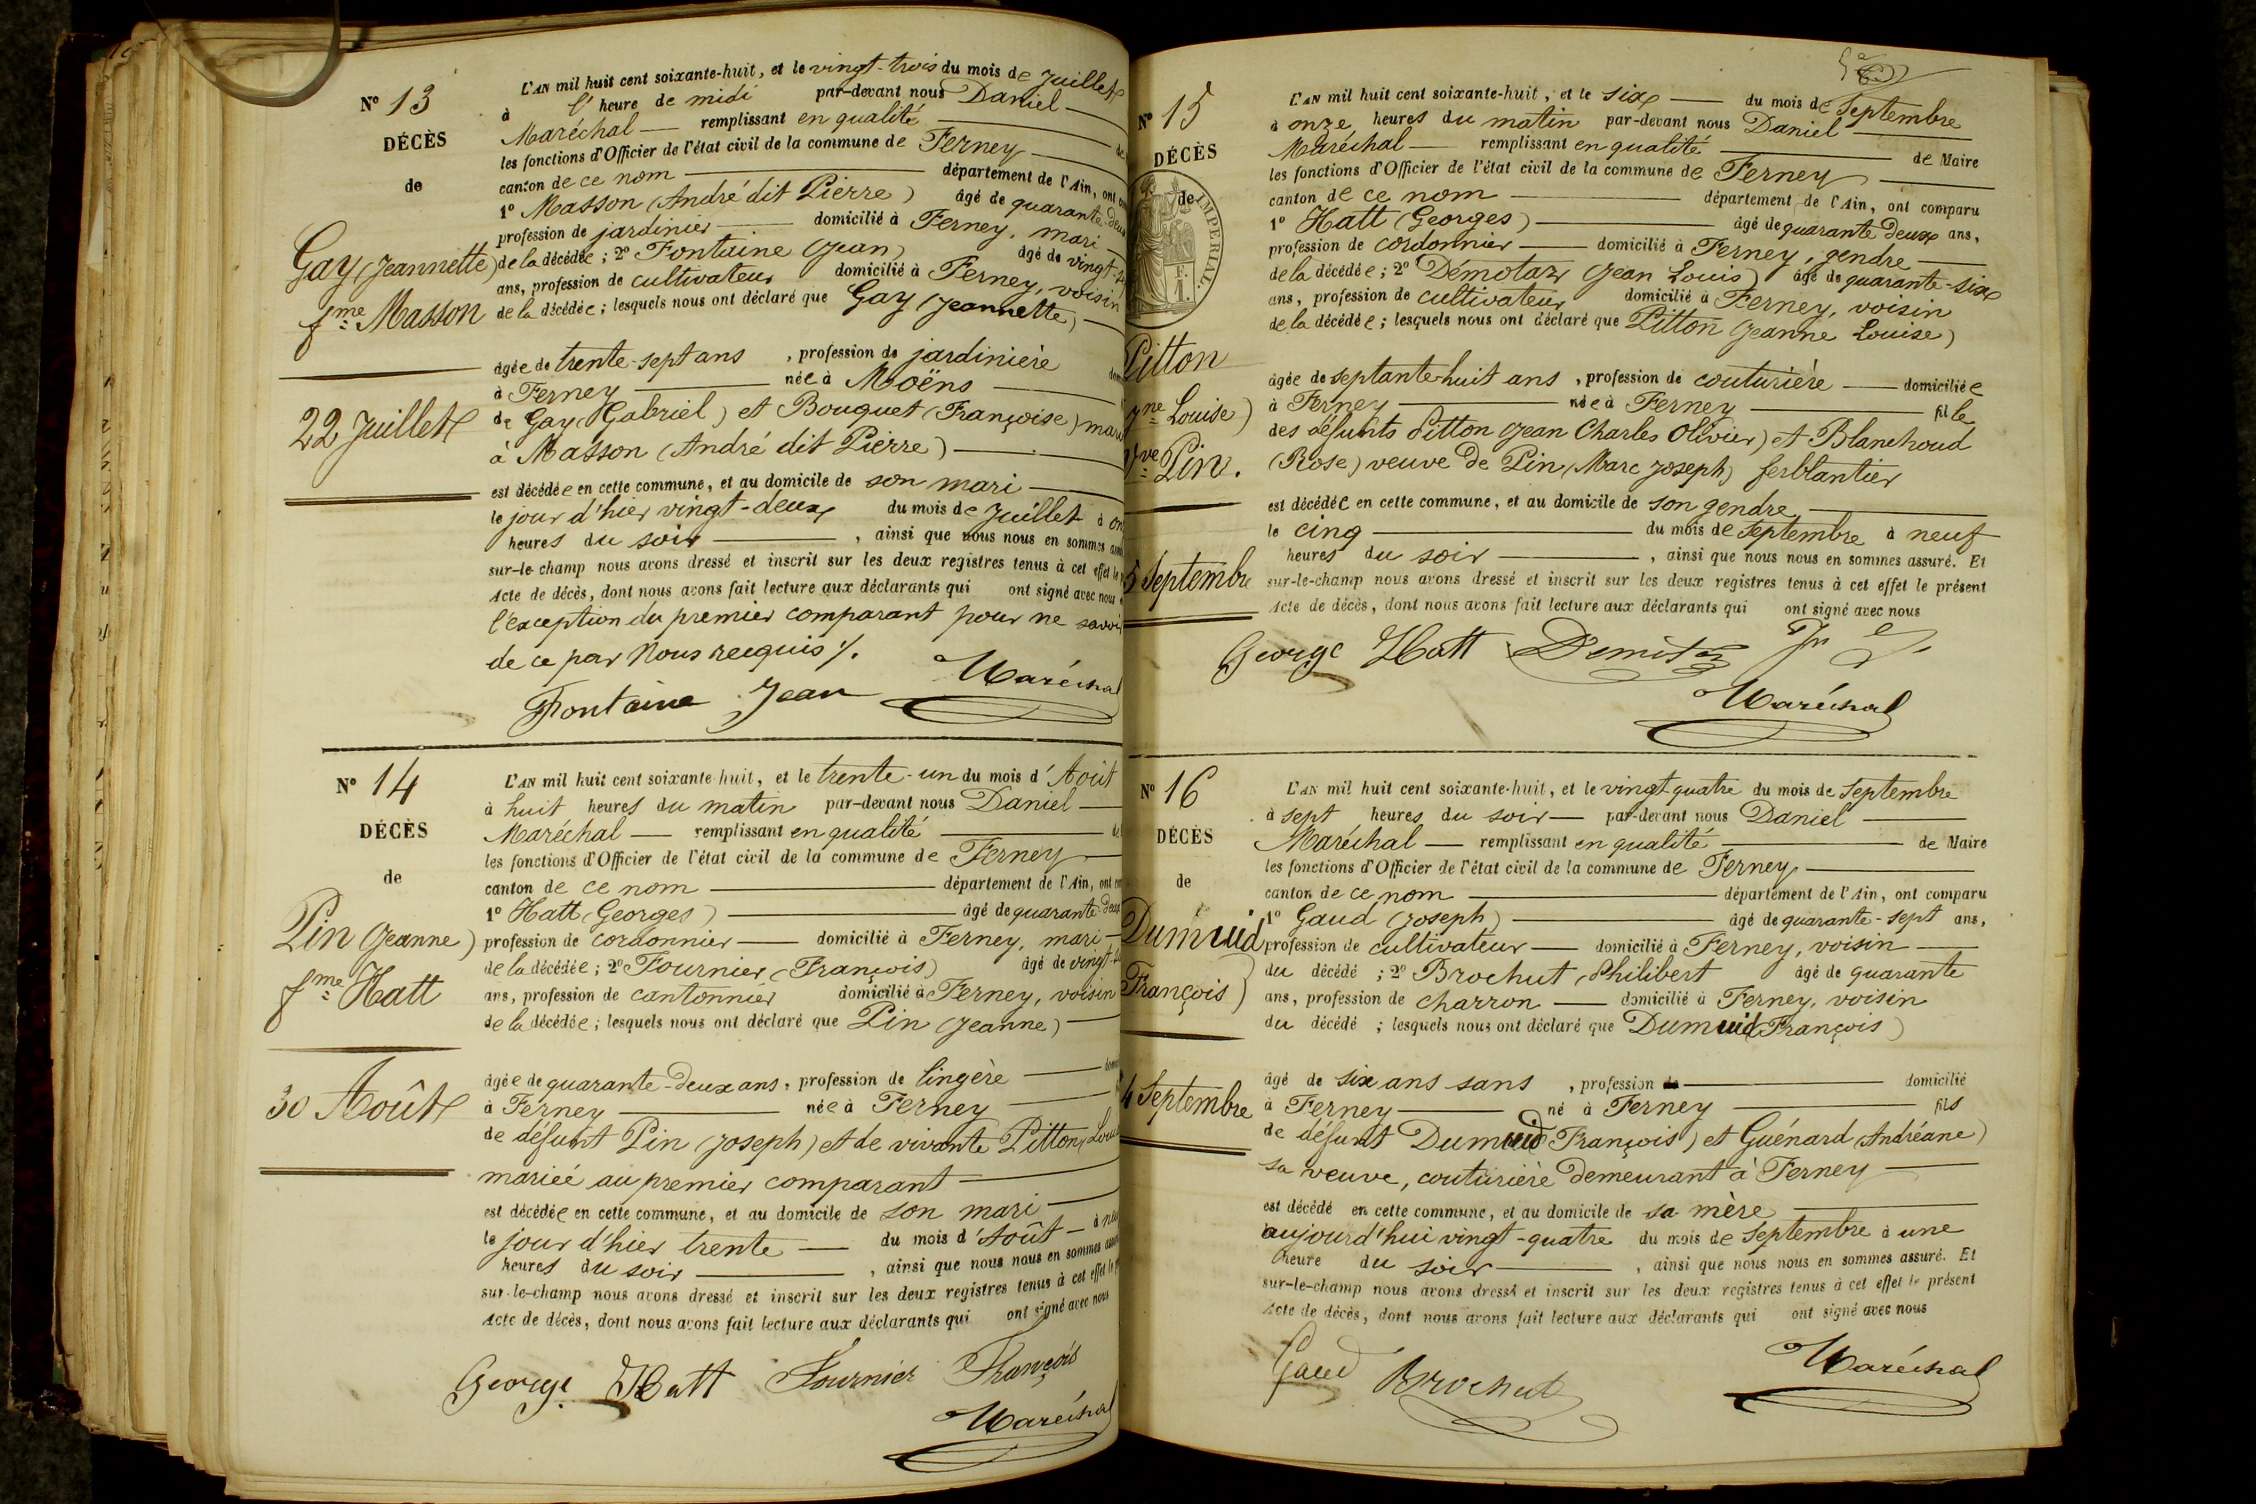 N° 13
DÉCÈS
de
Gay (Jeannette)
fme Masson
22 Juillet
L'AN mil huit cent soixante-huit, et le vingt-trois du mois de Juillet
à l'heure de midi par-devant nous Daniel
Maréchal remplissant en qualité de
les fonctions d'Officier de l'état civil de la commune de Ferney
canton de ce nom département de l'Ain, ont
1° Masson (André dit Pierre) âgé de quarante-deux
profession de jardinier domicilié à Ferney, mari
de la décédée ; 2° Fontaine (Jean) âgé de vingt-
ans, profession de cultivateur domicilié à Ferney, voisin
de la décédée ; lesquels nous ont déclaré que Gay (Jeannette)
âgée de trente-sept ans , profession de jardinière
à Ferney née à Moëns
de Gay (Gabriel) et Bouquet (Françoise)
à Masson (André dit Pierre)
est décédée en cette commune, et au domicile de son mari
le jour d'hier vingt-deux du mois de Juillet à
heures du soir , ainsi que nous nous en sommes
sur-le-champ nous avons dressé et inscrit sur les deux registres tenus à cet effet le
Acte de décès, dont nous avons fait lecture aux déclarants qui ont signé avec nous
l'exception du premier comparant pour ne savoir
de ce par Nous requis ./.
Fontaine Jean Maréchal
N° 14
DÉCÈS
de
Pin (Jeanne)
fme Hatt
30 Août
L'AN mil huit cent soixante-huit, et le trente-un du mois d'Août
à huit heures du matin par-devant nous Daniel
Maréchal remplissant en qualité de
les fonctions d'Officier de l'état civil de la commune de Ferney
canton de ce nom département de l'Ain, ont
1° Hatt (Georges) âgé de quarante-deux
profession de cordonnier domicilié à Ferney, mari
de la décédée ; 2° Fournier (François) âgé de vingt-
ans, profession de cantonnier domicilié à Ferney, voisin
de la décédée ; lesquels nous ont déclaré que Pin (Jeanne)
âgée de quarante-deux ans , profession de lingère
à Ferney née à Ferney
de défunt Pin (Joseph) et de vivante Pitton
mariée au premier comparant
est décédée en cette commune, et au domicile de son mari
le jour d'hier trente du mois d'Août à
heures du soir , ainsi que nous nous en sommes
sur-le-champ nous avons dressé et inscrit sur les deux registres tenus à cet effet le
Acte de décès, dont nous avons fait lecture aux déclarants qui ont signé avec nous
George Hatt Fournier François
Maréchal
N° 15
DÉCÈS
de
IMPÉRIAL.
Pitton
Jne Louise)
Vve Pin.
5 Septembre
L'AN mil huit cent soixante-huit, et le six du mois de Septembre
à onze heures du matin par-devant nous Daniel
Maréchal remplissant en qualité de Maire
les fonctions d'Officier de l'état civil de la commune de Ferney
canton de ce nom département de l'Ain, ont comparu
1° Hatt (Georges) âgé de quarante deux ans,
profession de cordonnier domicilié à Ferney, gendre
de la décédée ; 2° Démotaz (Jean Louis) âgé de quarante-six
ans, profession de cultivateur domicilié à Ferney, voisin
de la décédée ; lesquels nous ont déclaré que Pitton Jeanne Louise)
âgée de septante-huit ans , profession de couturière domiciliée
à Ferney née à Ferney fille
des défunts Pitton (Jean Charles Olivier) et Blanchoud
(Rose) veuve de Pin (Marc Joseph) ferblantier
est décédée en cette commune, et au domicile de son gendre
le cinq du mois de Septembre à neuf
heures du soir , ainsi que nous nous en sommes assuré. Et
sur-le-champ nous avons dressé et inscrit sur les deux registres tenus à cet effet le présent
Acte de décès, dont nous avons fait lecture aux déclarants qui ont signé avec nous
George Hatt
Maréchal
N° 16
DÉCÈS
de
Dumuid
François)
4 Septembre
L'AN mil huit cent soixante-huit, et le vingt-quatre du mois de Septembre
à sept heures du soir par-devant nous Daniel
Maréchal remplissant en qualité de Maire
les fonctions d'Officier de l'état civil de la commune de Ferney
canton de ce nom département de l'Ain, ont comparu
1° Gaud (Joseph) âgé de quarante-sept ans,
profession de cultivateur domicilié à Ferney, voisin
du décédé ; 2° Brochut (Philibert âgé de quarante
ans, profession de charron domicilié à Ferney, voisin
du décédé ; lesquels nous ont déclaré que Dumuid (François)
âgé de six ans sans , profession de domicilié
à Ferney né à Ferney fils
de défunt Dumuid François) et Guénard (Andréane)
sa veuve, couturière demeurant à Ferney
est décédé en cette commune, et au domicile de sa mère
aujourd'hui vingt-quatre du mois de Septembre à une
heure du soir , ainsi que nous nous en sommes assuré. Et
sur-le-champ nous avons dressé et inscrit sur les deux registres tenus à cet effet le présent
Acte de décès, dont nous avons fait lecture aux déclarants qui ont signé avec nous
Gaud Brochut Maréchal